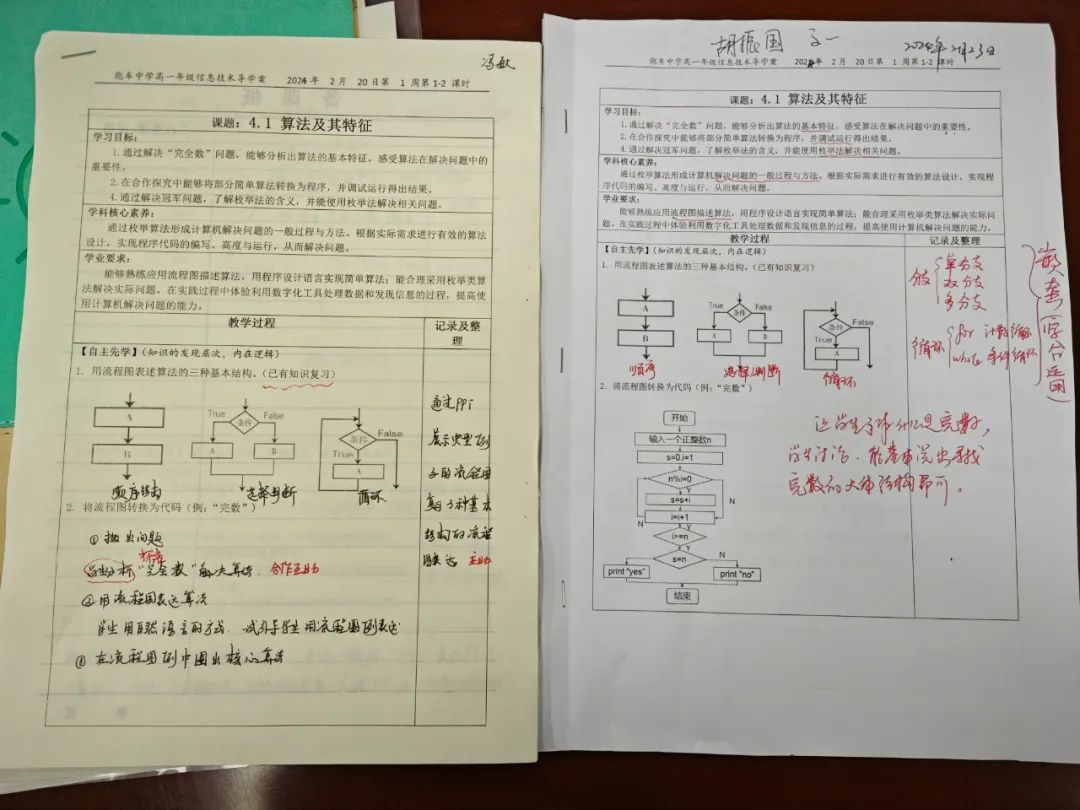 冯敏
炮车中学高一年级信息技术导学案 2024年 2月 20日第 1 周第1-2 课时
课题: 4.1 算法及其特征
学习目标:
1.通过解决“完全数”问题,能够分析出算法的基本特征,感受算法在解决问题中的
重要性。
2.在合作探究中能够将部分简单算法转换为程序,并调试运行得出结果。
4.通过解决冠军问题,了解枚举法的含义,并能使用枚举法解决相关问题。
学科核心素养:
通过枚举算法形成计算机解决问题的一般过程与方法。根据实际需求进行有效的算法
设计,实现程序代码的编写、高度与运行,从而解决问题。
学业要求:
能够熟练应用流程图描述算法,用程序设计语言实现简单算法;能合理采用枚举类算
法解决实际问题。在实践过程中体验利用数字化工具处理数据和发现信息的过程,提高使
用计算机解决问题的能力。
教学过程
记录及整
理
【自主先学】(知识的发现层次,内在逻辑)
1. 用流程图表述算法的三种基本结构。(已有知识复习)
A
B
True
条件
False
A
B
条件
False
True
A
顺序结构
选择判断
循环
通过PPT
展示典型例
子的流程图
复习3种基本
结构的流程
图表达 主助
2. 将流程图转换为代码(例:“完数”)
①抛出问题
学生分析“完全数”解决算法. 合作互助
②用流程图表达算法
学生用自然语言的方式. 试引导学生用流程图例表达
③在流程图例中圈出核心算法
胡振国
2024年2月23日
炮车中学高一年级信息技术导学案 2024年 2月 20日第 1 周第1-2 课时
课题: 4.1 算法及其特征
学习目标:
1.通过解决“完全数”问题,能够分析出算法的基本特征,感受算法在解决问题中的重要性。
2.在合作探究中能够将部分简单算法转换为程序,并调试运行得出结果。
4.通过解决冠军问题,了解枚举法的含义,并能使用枚举法解决相关问题。
学科核心素养:
通过枚举算法形成计算机解决问题的一般过程与方法。根据实际需求进行有效的算法设计,实现程
序代码的编写、高度与运行,从而解决问题。
学业要求:
能够熟练应用流程图描述算法,用程序设计语言实现简单算法;能合理采用枚举类算法解决实际问
题。在实践过程中体验利用数字化工具处理数据和发现信息的过程,提高使用计算机解决问题的能力。
教学过程
记录及整理
【自主先学】(知识的发现层次,内在逻辑)
1. 用流程图表述算法的三种基本结构。(已有知识复习)
A
B
True
条件
False
A
B
条件
False
True
A
顺序
选择/判断
循环
分支
单分支
双分支
多分支
循环
for 计数循环
while 条件循环
嵌套(综合运用)
2. 将流程图转换为代码(例:“完数”)
开始
输入一个正整数n
s=0,i=1
n%i=0
Y
s=s+i
N
i=i+1
N
i>=n
Y
s=n
N
Y
print "yes"
print "no"
结束
让学生了解什么是完数,
学生讨论.能基本说出寻找
完数的大体结构即可。